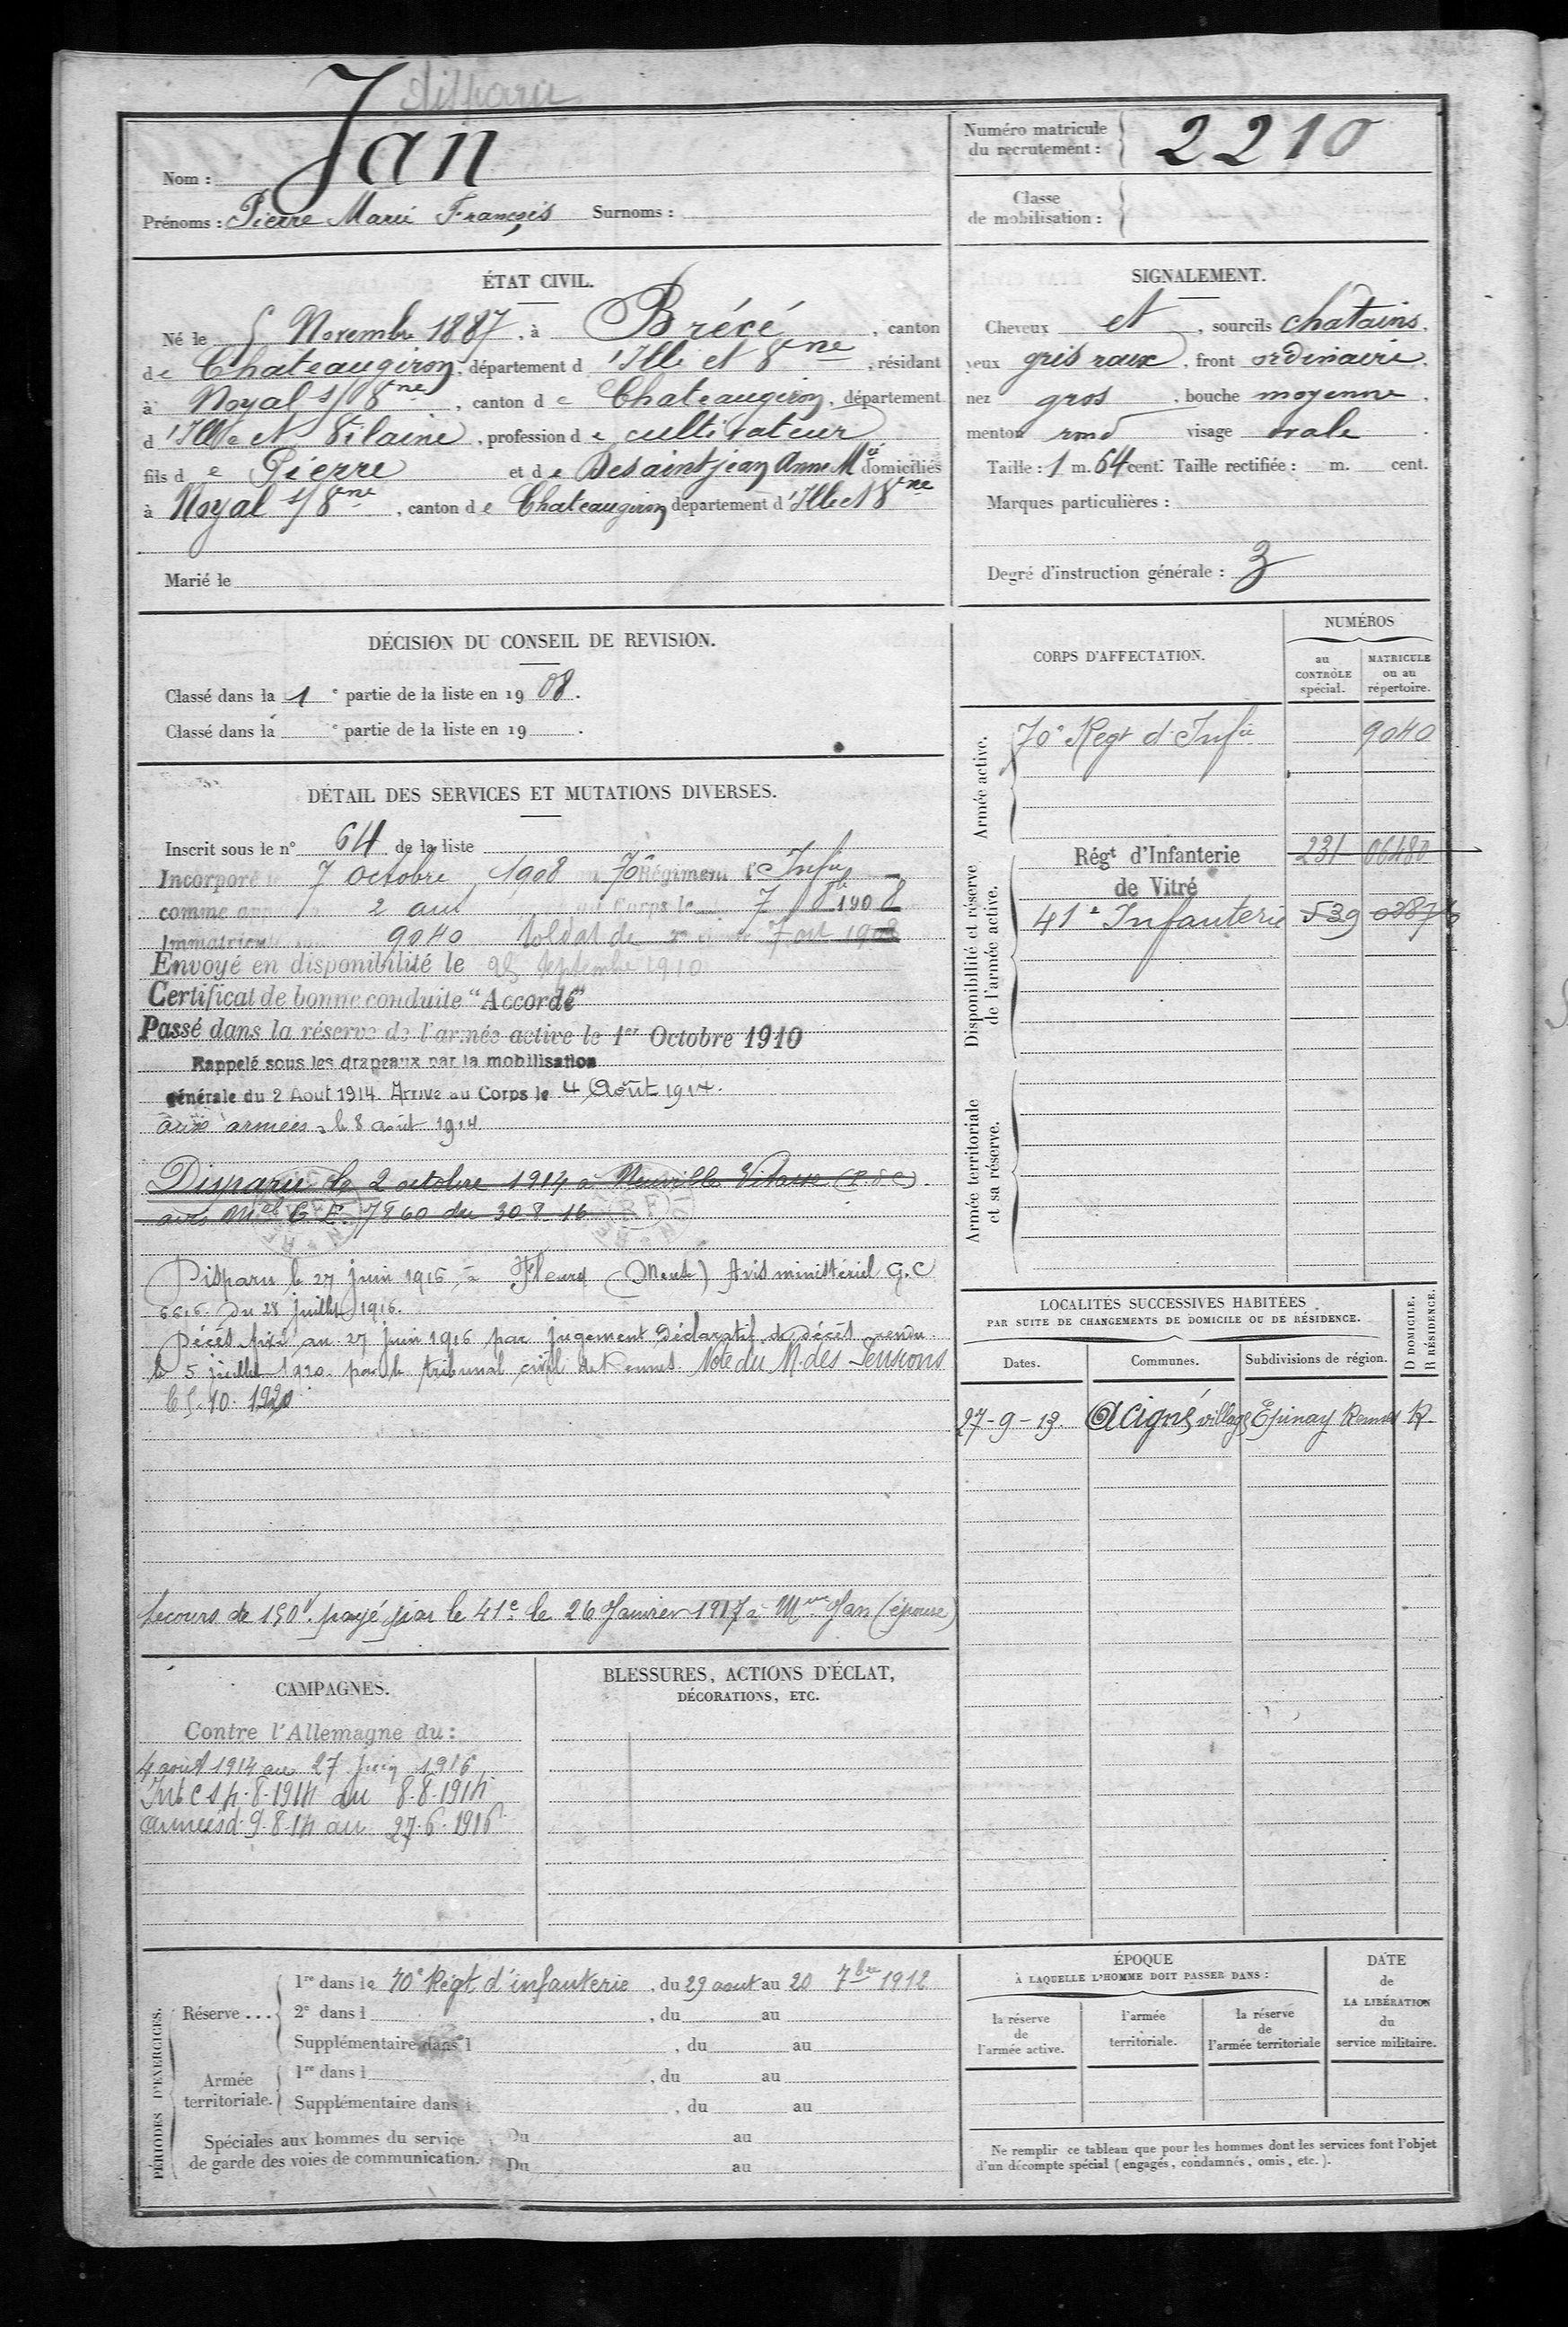 disparu
Nom : Jan
Prénoms : Pierre Marie François Surnoms :
Numéro matricule du recrutement : 2210
Classe de mobilisation :
ÉTAT CIVIL.
Né le 5 Novembre 1887, à Brécé, canton
de Chateaugiron, département d'Ille et Vne, résidant
à Noyal s/Vne, canton de Chateaugiron, département
d'Ille et Vilaine, profession de cultivateur
fils de Pierre et de Desaintjean Anne Mie domiciliés
à Noyal s/Vne, canton de Chateaugiron département d'Ille et Vne
Marié le
SIGNALEMENT.
Cheveux et, sourcils chatains,
yeux gris roux, front ordinaire,
nez gros, bouche moyenne,
menton rond visage ovale.
Taille : 1 m. 64 cent. Taille rectifiée : m. cent.
Marques particulières :
Degré d'instruction générale : 3
DÉCISION DU CONSEIL DE REVISION.
Classé dans la 1e partie de la liste en 1908.
Classé dans la e partie de la liste en 19 .
DÉTAIL DES SERVICES ET MUTATIONS DIVERSES.
Inscrit sous le n° 64 de la liste
Incorporé le 7 octobre 1908 au 70e Régiment d'Infie
comme 2 ans au Corps le 7 8bre 1908
Immatriculé 9040 Soldat de 2e classe 7 oct 1908
Envoyé en disponibilité le 25 septembre 1910
Certificat de bonne conduite "Accordé"
Passé dans la réserve de l'armée active le 1er Octobre 1910
Rappelé sous les drapeaux par la mobilisation
générale du 2 Aout 1914. Arrivé au Corps le 4 Août 1914.
aux armées le 8 août 1914
Disparu le 2 octobre 1914 à Neuville Vitasse (P. de C).
avis Mel G. E. 7860 du 30-8-16
Disparu le 27 juin 1916 à Fleury (Meuse) Avis ministériel G.C
6616 du 28 juillet 1916.
Décès fixé au 27 juin 1916 par jugement déclaratif de décès rendu
le 5 juillet 1920 par le tribunal civil de Rennes. Note du M. des Pensions
le 5.10.1920
Secours de 150f. payé par le 41e le 26 Janvier 1917 à Mme Jan (épouse)
CORPS D'AFFECTATION.
NUMÉROS
au CONTRÔLE spécial.
MATRICULE ou au répertoire.
Armée active.
70e Régt d'Infie 9040
Disponibilité et réserve de l'armée active.
Régt d'Infanterie 231 06480
de Vitré
41e Infanterie 539
Armée territoriale et sa réserve.
LOCALITÉS SUCCESSIVES HABITÉES
PAR SUITE DE CHANGEMENTS DE DOMICILE OU DE RÉSIDENCE.
Dates. Communes. Subdivisions de région. D DOMICILE. R RÉSIDENCE.
27-9-13. Acigné, village Épinay Rennes R.
CAMPAGNES.
Contre l'Allemagne du :
4 août 1914 au 27 juin 1916
Int C s 4.8.1914 au 8.8.1914
armées d. 9.8.14 au 27.6.1916
BLESSURES, ACTIONS D'ÉCLAT,
DÉCORATIONS, ETC.
PÉRIODES D'EXERCICES.
Réserve ...
1re dans le 70e Régt d'infanterie, du 29 aout au 20 7bre 1912
2e dans l , du au
Supplémentaire dans l , du au
Armée territoriale.
1re dans l , du au
Supplémentaire dans l , du au
Spéciales aux hommes du service de garde des voies de communication.
Du au
Du au
ÉPOQUE
À LAQUELLE L'HOMME DOIT PASSER DANS :
la réserve de l'armée active.
l'armée territoriale.
la réserve de l'armée territoriale
DATE de LA LIBÉRATION du service militaire.
Ne remplir ce tableau que pour les hommes dont les services font l'objet
d'un décompte spécial (engagés, condamnés, omis, etc.).